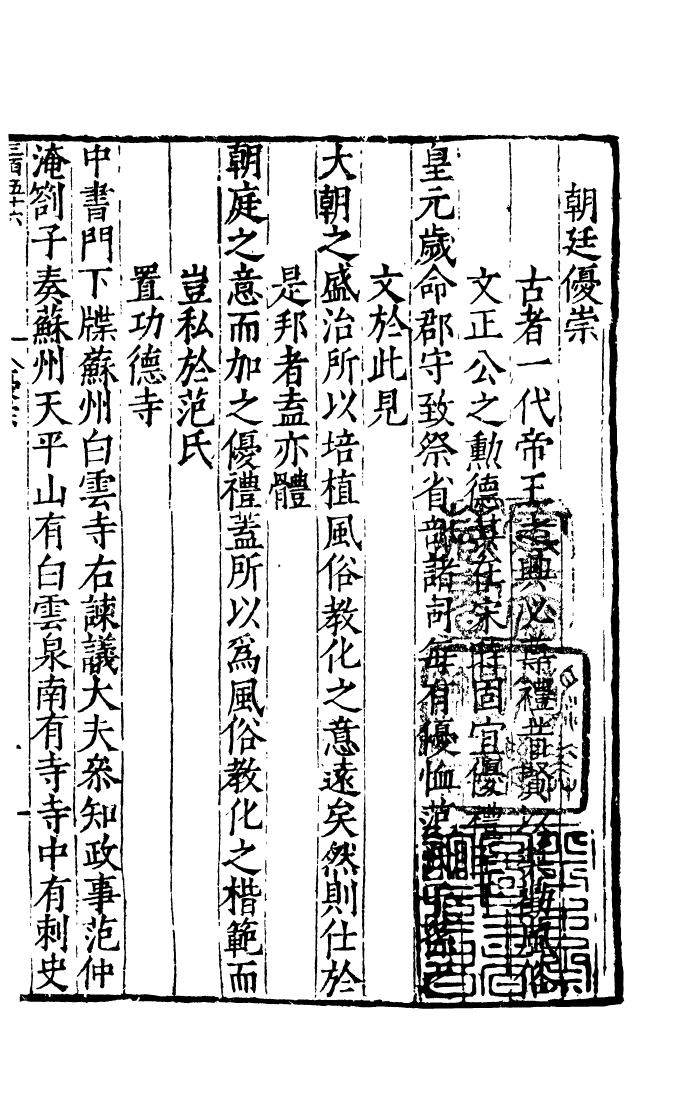 朝廷優崇
古者一代帝王者興必尊禮昔賢以風俗
文正公之勳德其在宋時固宜優禮
皇元歲命郡守致祭省部諸司每有優恤范
文於此見
大朝之盛治所以培植風俗教化之意遠矣然則仕於
是邦者盍亦體
朝庭之意而加之優禮蓋所以爲風俗教化之楷範而
豈私於范氏
置功德寺
中書門下牒蘇州白雲寺右諫議大夫叅知政事范仲
淹劄子奏蘇州天平山有白雲泉南有寺寺中有刺史
三百五十六